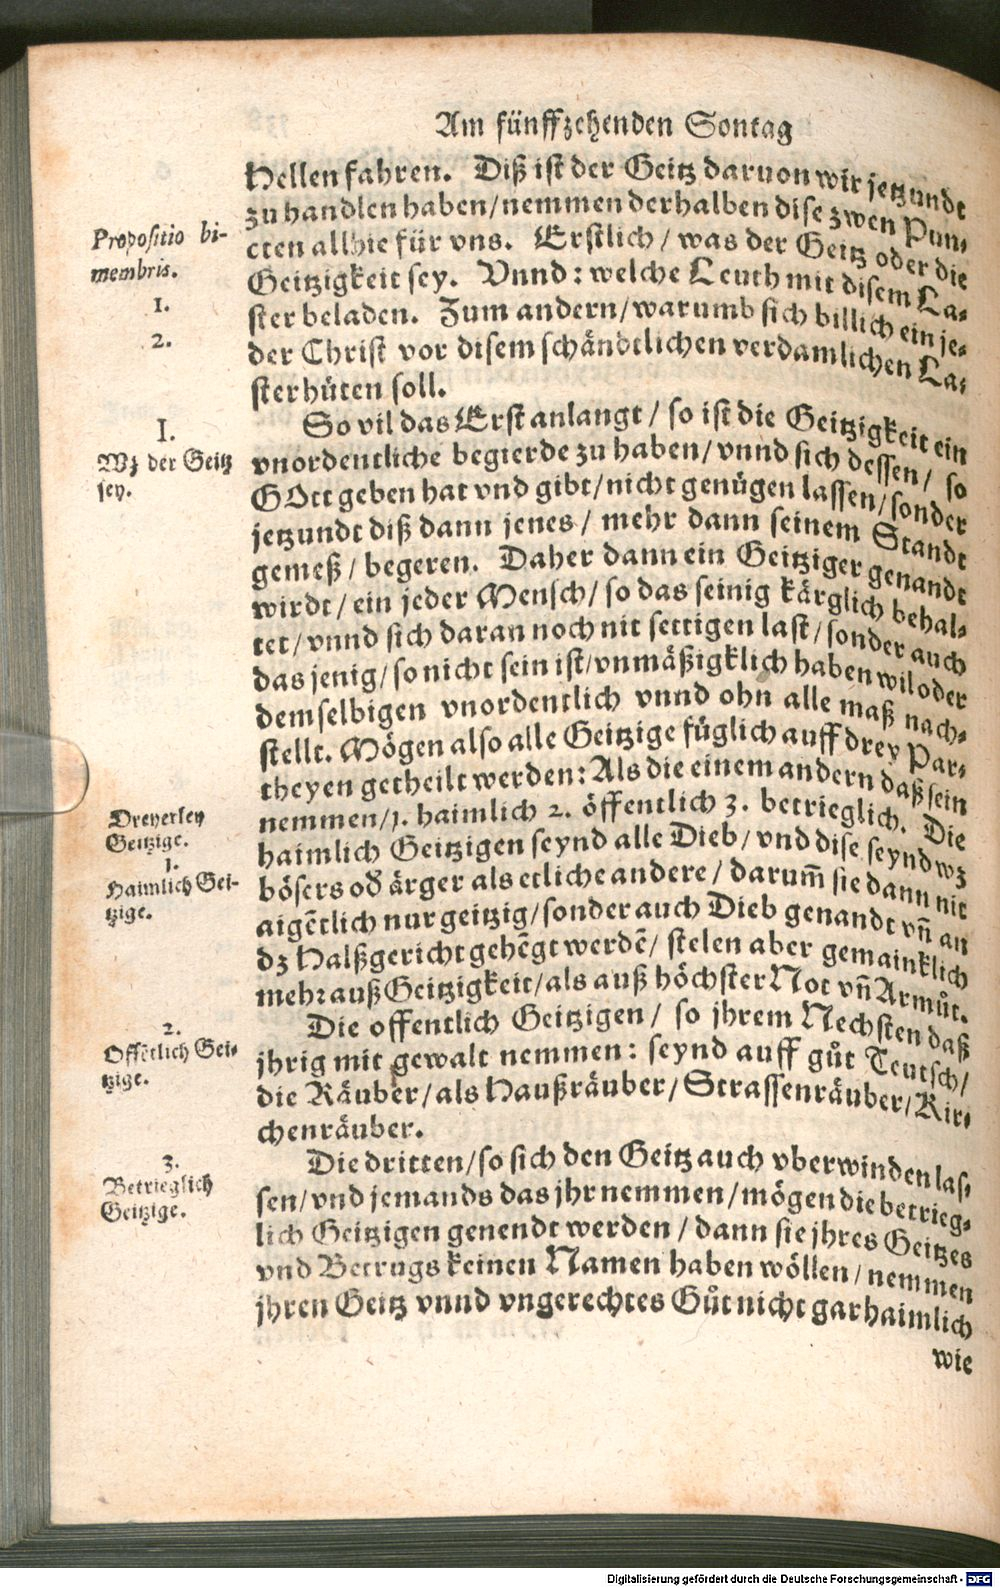 Am fünffzehenden Sontag
Hellen fahren. Diß ist der Geitz daruon wir jetzundt
zu handlen haben/nemmen derhalben dise zwen Pun-
Propositio bi-
membris.
cten allhie für vns. Erstlich/ was der Geitz oder die
Geitzigkeit sey. Vnnd: welche Leuth mit disem La-
1.
ster beladen. Zum andern/warumb sich billich ein je-
2.
der Christ vor disem schändtlichen verdamlichen La-
ster hüten soll.
I.
So vil das Erst anlangt/ so ist die Geitzigkeit ein
Wz der Geitz
sey.
vnordentliche begierde zu haben/ vnnd sich dessen/ so
GOtt geben hat vnd gibt/nicht genůgen lassen/sonder
jetzundt diß dann jenes/ mehr dann seinem Standt
gemeß/ begeren. Daher dann ein Geitziger genandt
wirdt/ ein jeder Mensch/ so das seinig kärglich behal-
tet/ vnnd sich daran noch nit settigen last/sonder auch
das jenig/so nicht sein ist/vnmäßigklich haben wil oder
demselbigen vnordentlich vnnd ohn alle maß nach-
stellt. Mögen also alle Geitzige füglich auff drey Par-
theyen getheilt werden: Als die einem andern daß sein
Dreyerley
Geitzige.
nemmen/1. haimlich 2. öffentlich 3. betrieglich. Die
1.
Haimlich Gei-
tzige.
haimlich Geitzigen seynd alle Dieb/ vnd dise seynd wz
bösers od̃ ärger als etliche andere/ darum̃ sie dann nit
aigẽtlich nur geitzig/sonder auch Dieb genandt vñ an
dz Halßgericht gehẽgt werdẽ/ stelen aber gemainklich
mehr auß Geitzigkeit/als auß höchster Not vñ Armůt.
2.
Offẽtlich Gei-
tzige.
Die offentlich Geitzigen/ so jhrem Nechsten daß
jhrig mit gewalt nemmen: seynd auff gůt Teutsch/
die Räuber/als Haußräuber/Strassenräuber/Kir-
chenräuber.
3.
Betrieglich
Geitzige.
Die dritten/so sich den Geitz auch vberwinden las-
sen/vnd jemands das jhr nemmen/mögen die betrieg-
lich Geitzigen genendt werden/ dann sie jhres Geitzes
vnd Betrugs keinen Namen haben wöllen/nemmen
jhren Geitz vnnd vngerechtes Gůt nicht gar haimlich
wie
Digitalisierung gefördert durch die Deutsche Forschungsgemeinschaft - DFG